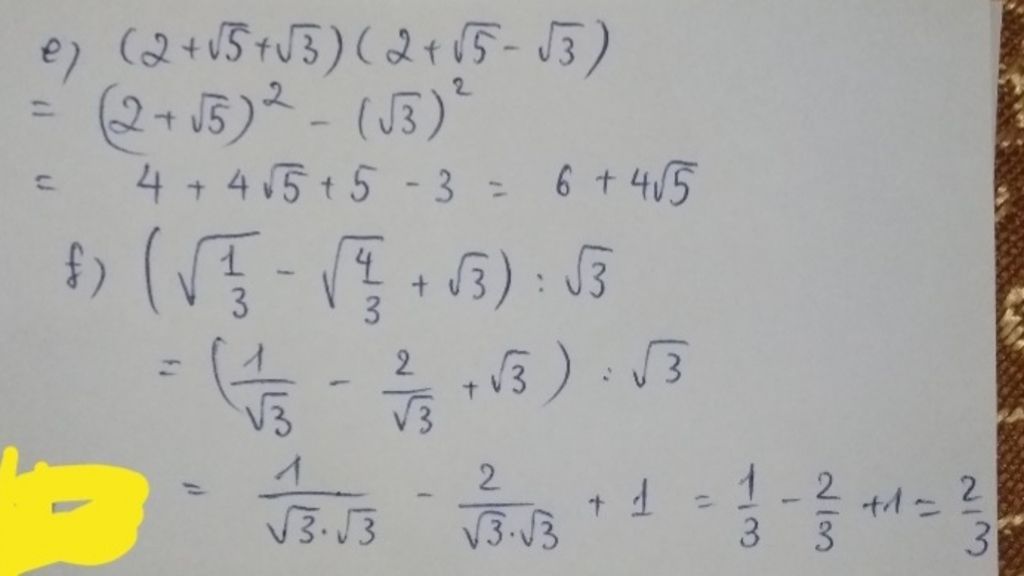 e) (2+√5+√3)(2+√5-√3)
= (2+√5)² - (√3)²
= 4 + 4√5 + 5 - 3 = 6 + 4√5
f) (√(1/3) - √(4/3) + √3) : √3
= (1/√3 - 2/√3 + √3) : √3
= 1/(√3·√3) - 2/(√3·√3) + 1 = 1/3 - 2/3 + 1 = 2/3